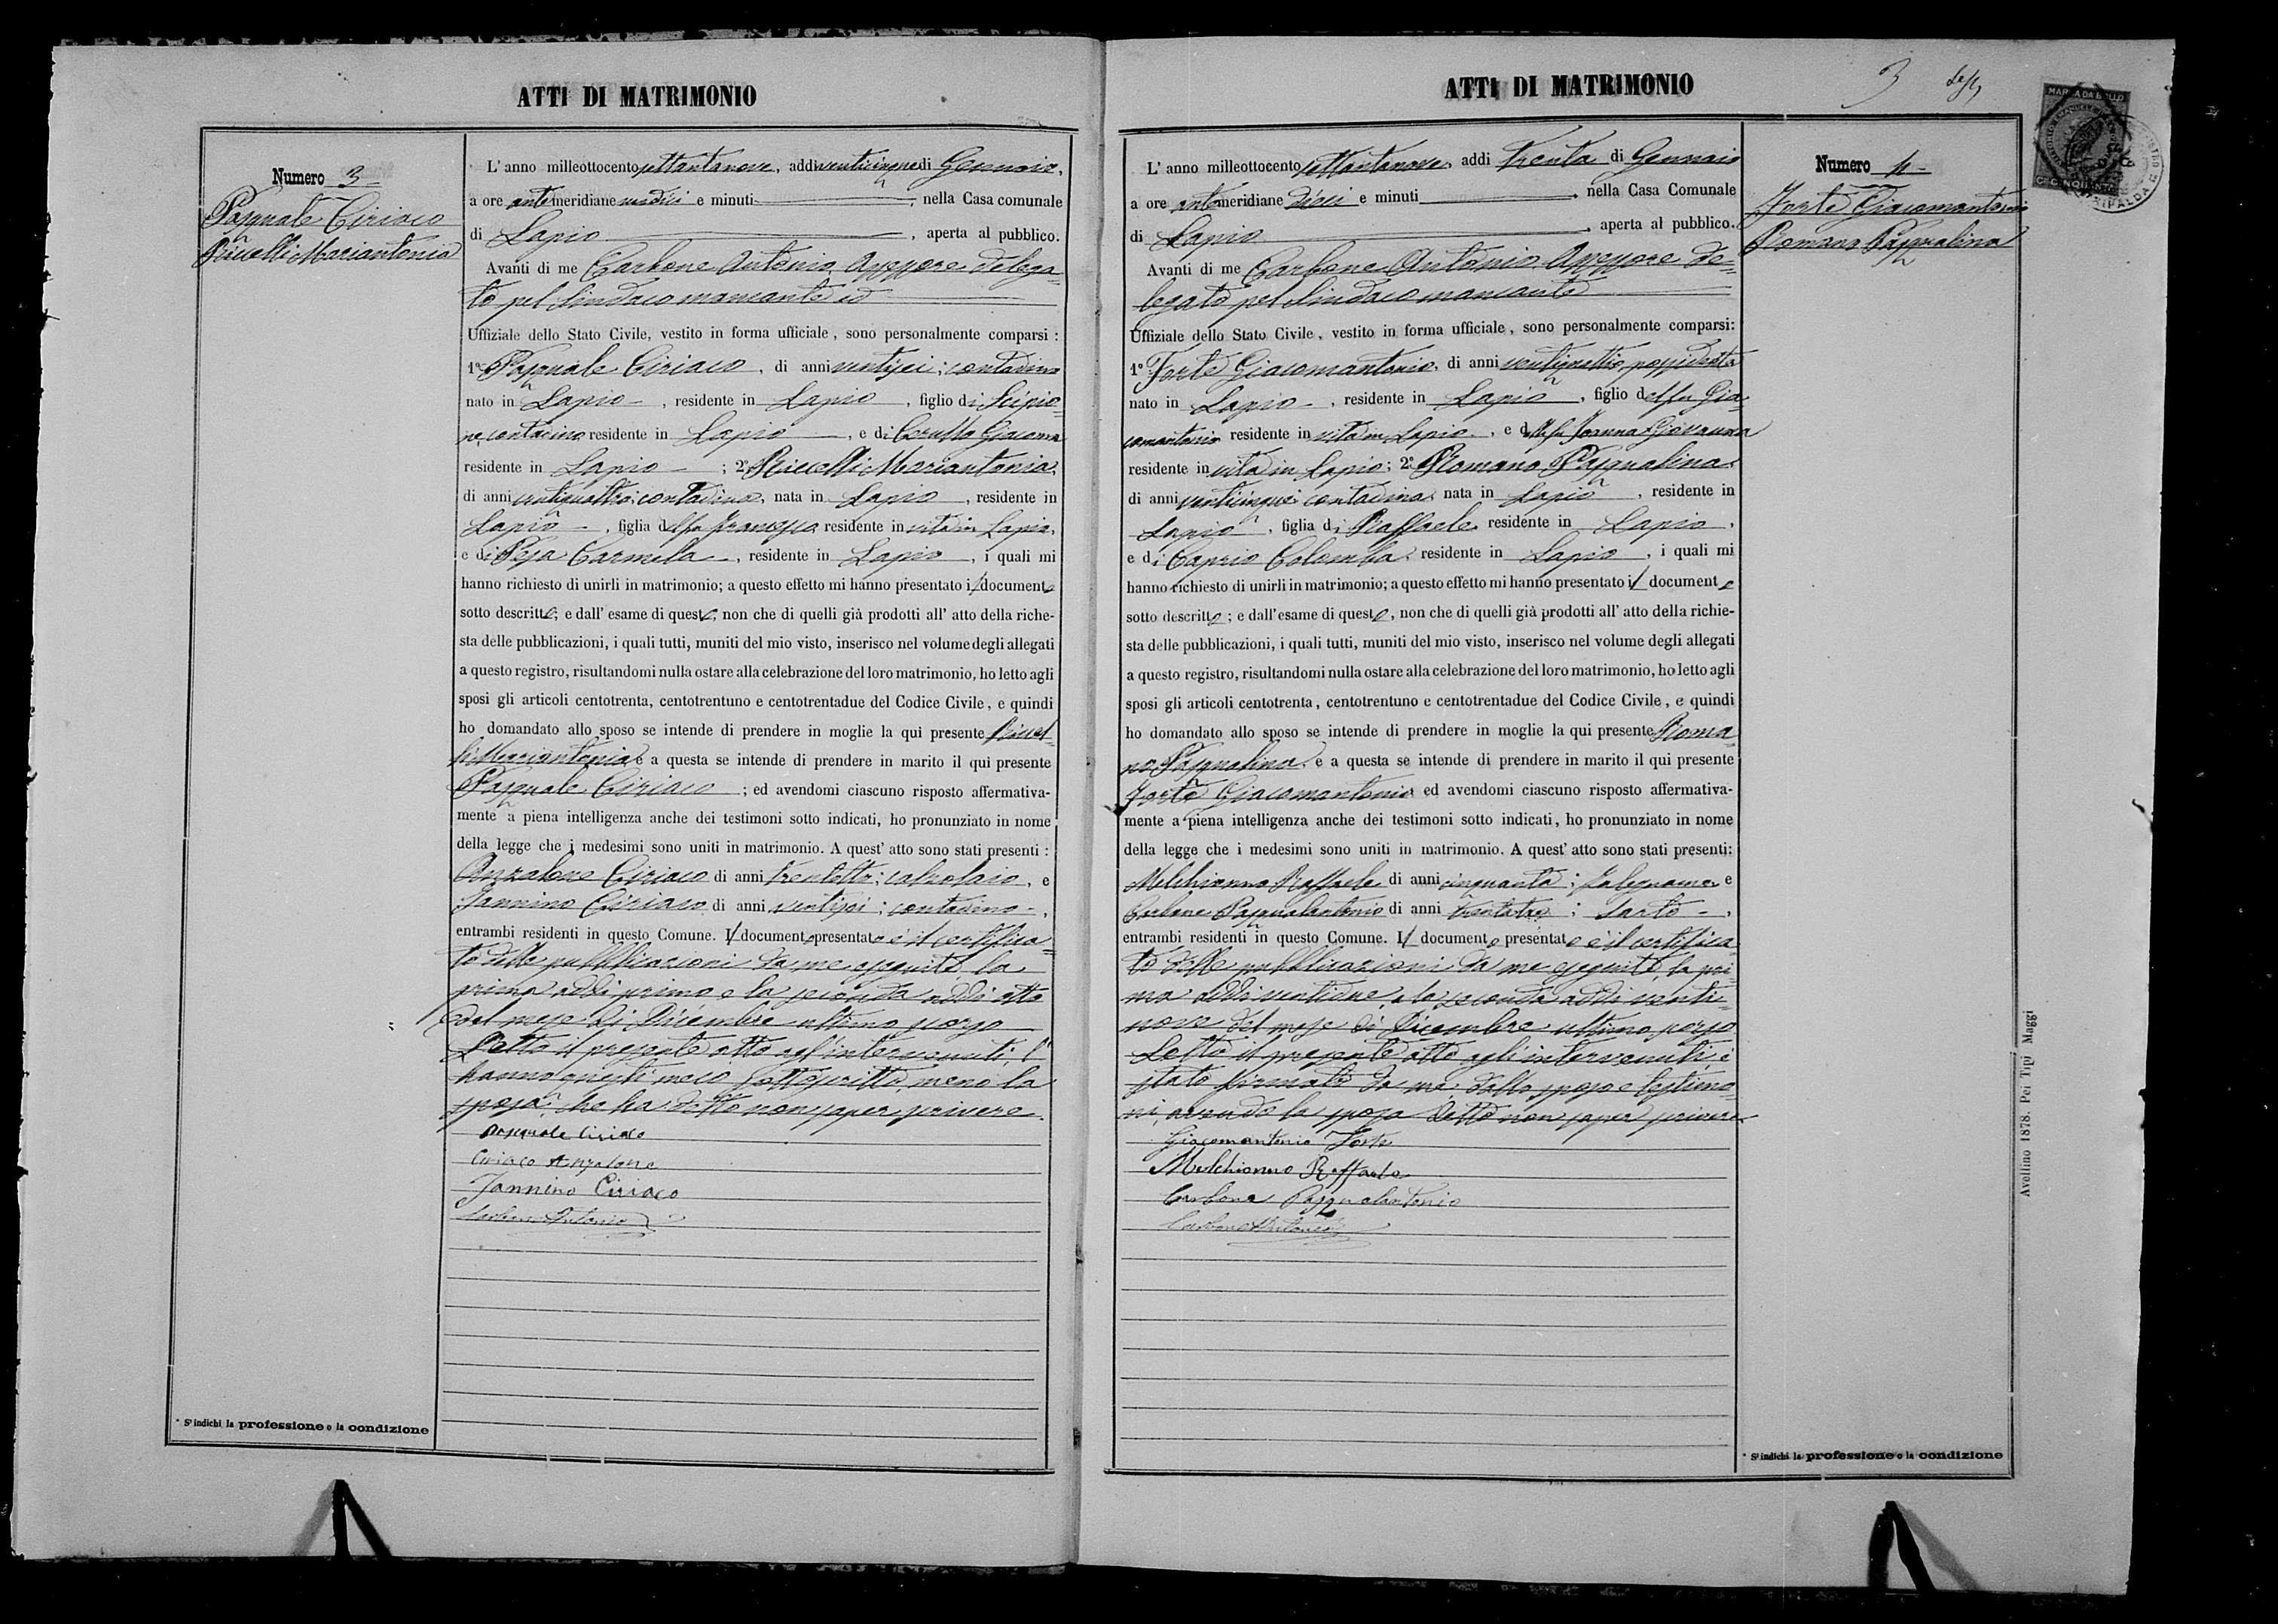 ATTI DI MATRIMONIO
Numero 3
Pasquale Ciriaco
Riccelli Mariantonia
L' anno milleottocento settantanove, addi venticinque di Gennaio,
a ore antemeridiane undici e minuti , nella Casa comunale
di Lapio , aperta al pubblico.
Avanti di me Carbone Antonio Assessore delega-
to pel Sindaco mancante
Uffiziale dello Stato Civile, vestito in forma ufficiale, sono personalmente comparsi :
1º Pasquale Ciriaco, di anni ventisei; contadino
nato in Lapio, residente in Lapio, figlio di Scipio-
ne, contadino residente in Lapio, e di Giacoma
residente in Lapio ; 2º Riccelli Mariantonia,
di anni ventiquattro; contadina, nata in Lapio, residente in
Lapio, figlia del fu Francesco residente in vita in Lapio,
e di Pesa Carmela, residente in Lapio, i quali mi
hanno richiesto di unirli in matrimonio; a questo effetto mi hanno presentato il documento
sotto descritto; e dall' esame di questo, non che di quelli già prodotti all' atto della richie-
sta delle pubblicazioni, i quali tutti, muniti del mio visto, inserisco nel volume degli allegati
a questo registro, risultandomi nulla ostare alla celebrazione del loro matrimonio, ho letto agli
sposi gli articoli centotrenta, centotrentuno e centotrentadue del Codice Civile, e quindi
ho domandato allo sposo se intende di prendere in moglie la qui presente Riccel-
li Mariantonia e a questa se intende di prendere in marito il qui presente
Pasquale Ciriaco ; ed avendomi ciascuno risposto affermativa-
mente a piena intelligenza anche dei testimoni sotto indicati, ho pronunziato in nome
della legge che i medesimi sono uniti in matrimonio. A quest' atto sono stati presenti :
Anzalone Ciriaco di anni trentotto; calzolaio, e
Jannino Ciriaco di anni ventisei; contadino,
entrambi residenti in questo Comune. Il documento presentato è il certifica-
to delle pubblicazioni da me eseguite la
prima addi primo e la seconda addi otto
del mese di Dicembre ultimo scorso
Letto il presente atto agl'intervenuti, l'
hanno questi meco sottoscritto, meno la
sposa che ha detto non saper scrivere.
Pasquale Ciriaco
Ciriaco Anzalone
Jannino Ciriaco
Carbone Antonio
* Si indichi la professione o la condizione
ATTI DI MATRIMONIO
3
MARCA DA BOLLO
Numero 4
Forte Giacomantonio
Romano Pasqualina
L' anno milleottocento settantanove, addi trenta di Gennaio
a ore antemeridiane dieci e minuti , nella Casa Comunale
di Lapio , aperta al pubblico.
Avanti di me Carbone Antonio Assessore de-
legato pel Sindaco mancante
Uffiziale dello Stato Civile, vestito in forma ufficiale, sono personalmente comparsi:
1º Forte Giacomantonio, di anni ventiquattro, possidente
nato in Lapio, residente in Lapio, figlio del fu Gia-
comantonio residente in vita in Lapio, e della fu Giovanna
residente in vita in Lapio; 2º Romano Pasqualina,
di anni venticinque; contadina, nata in Lapio, residente in
Lapio, figlia di Raffaele residente in Lapio,
e di Caprio Colomba, residente in Lapio, i quali mi
hanno richiesto di unirli in matrimonio; a questo effetto mi hanno presentato il documento
sotto descritto; e dall' esame di questo, non che di quelli già prodotti all' atto della richie-
sta delle pubblicazioni, i quali tutti, muniti del mio visto, inserisco nel volume degli allegati
a questo registro, risultandomi nulla ostare alla celebrazione del loro matrimonio, ho letto agli
sposi gli articoli centotrenta, centotrentuno e centotrentadue del Codice Civile, e quindi
ho domandato allo sposo se intende di prendere in moglie la qui presente Roma-
no Pasqualina, e a questa se intende di prendere in marito il qui presente
Forte Giacomantonio ed avendomi ciascuno risposto affermativa-
mente a piena intelligenza anche dei testimoni sotto indicati, ho pronunziato in nome
della legge che i medesimi sono uniti in matrimonio. A quest' atto sono stati presenti:
Melchionno Raffaele di anni cinquanta; falegname, e
Carbone Pasqualantonio di anni trentatre; sarto,
entrambi residenti in questo Comune. Il documento presentato è il certifica-
to delle pubblicazioni da me eseguite, la pri-
ma addi ventidue, e la seconda addi venti-
nove del mese di Dicembre ultimo scorso
Letto il presente atto agli intervenuti, è
stato firmato da me, dallo sposo e testimo-
ni, avendo la sposa detto non saper scrivere
Giacomantonio Forte
Melchionno Raffaele
Carbone Pasqualantonio
Carbone Antonio
* Si indichi la professione o la condizione
Avellino 1878. Pei Tipi Maggi